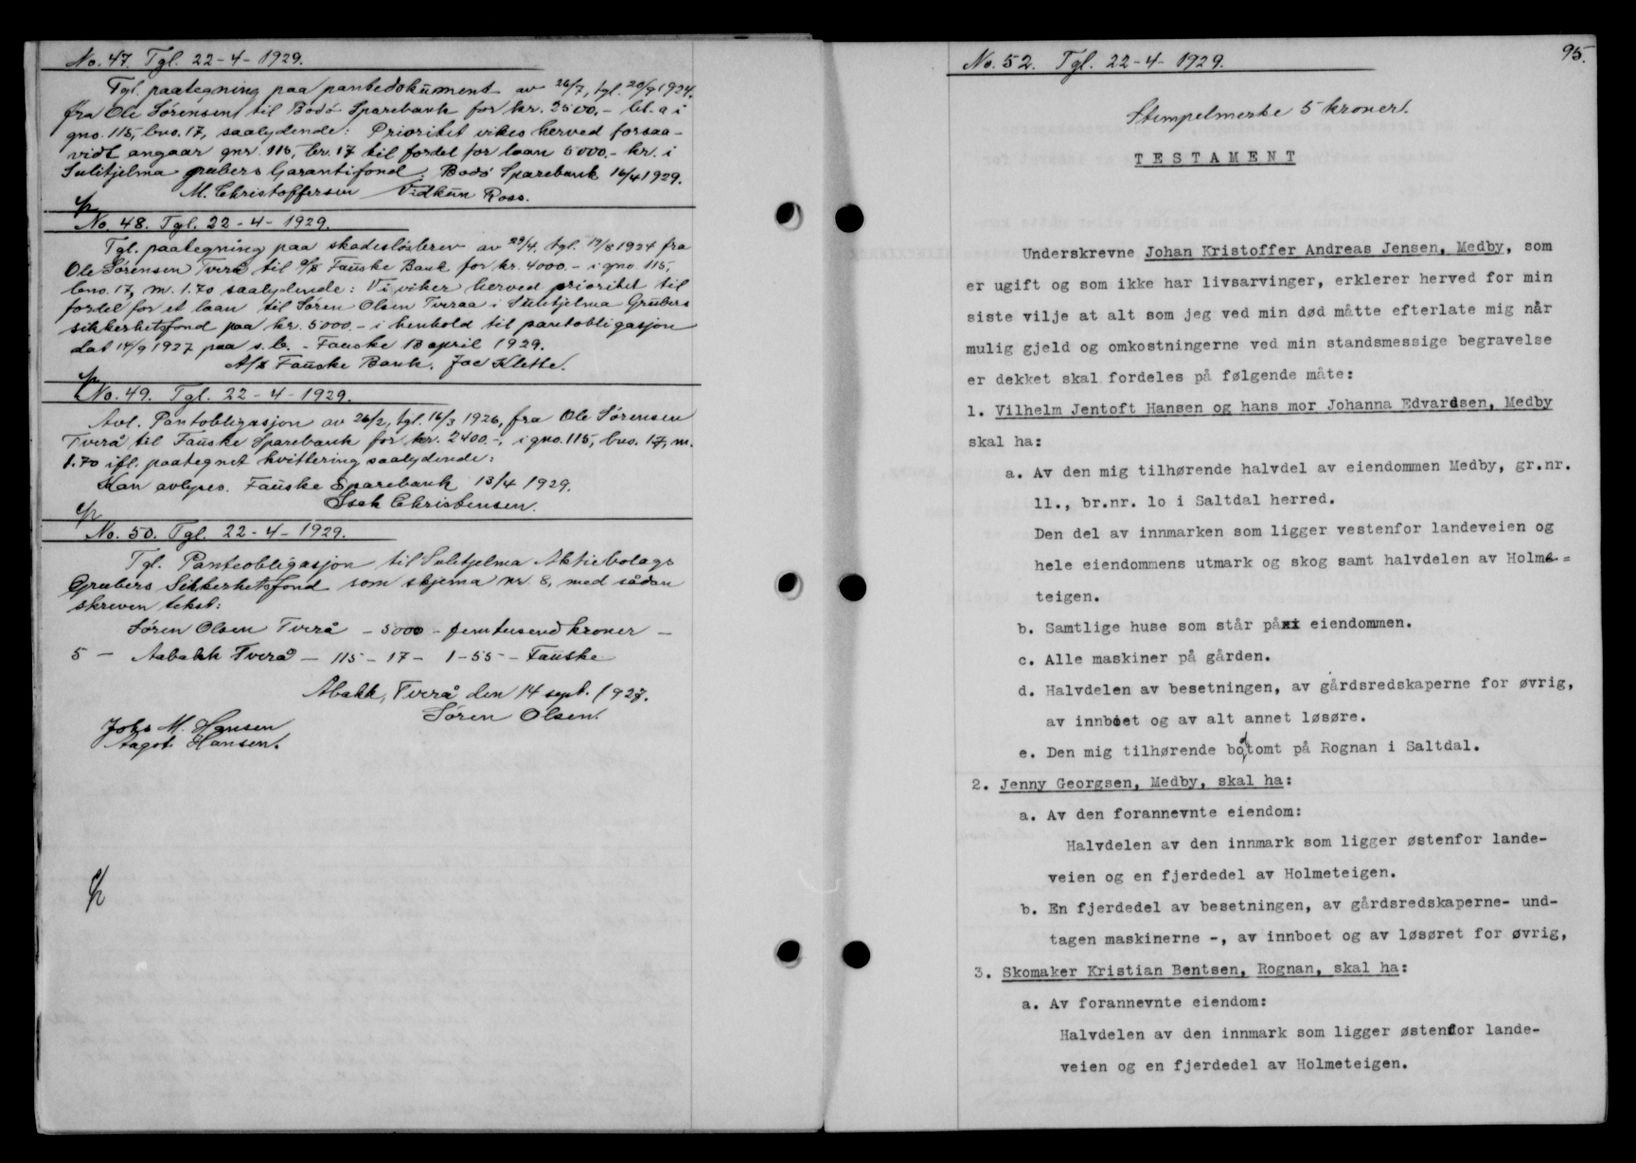 No. 47. Tgl. 22-4-1929.
Tgl. paategning paa pantedokument av 26/7, tgl. 20/9 1924.
fra Ole Sørensen til Bodö Sparebank for kr. 2500,- lit. a i
gno. 115, bno. 17, saalydende: Prioritet vikes herved forsaa-
vidt angaar gnr. 115, br. 17 til fordel for laan 5000,- kr. i
Sulitjelma grubers Garantifond. Bodö Sparebank 16/4 1929.
M. Christoffersen Vidkun Ross.
No. 48. Tgl. 22-4-1929.
Tgl. paategning paa skadeslösbrev av 29/4, tgl. 12/8 1924 fra
Ole Sørensen Tverå til a/s Fauske Bank for kr. 4000.- i gno. 115,
bno. 17, m. 1.70 saalydende: Vi viker herved prioritet til
fordel for et laan til Sören Olsen Tveraa i Sulitjelma Grubers
sikkerhetsfond paa kr. 5000.- i henhold til pantobligasjon
dat 14/9 1927 paa s. b. - Fauske 18 april 1929.
A/s Fauske Bank. Joe Klette.
No. 49. Tgl. 22-4-1929.
Avl. Pantobligasjon av 26/2, tgl. 16/3 1926, fra Ole Sørensen
Tverå til Fauske Sparebank for kr. 2400.-, i gno. 115, bno. 17, m.
1.70 ifl. paategnet kvittering saalydende:
Kan avlyses. Fauske Sparebank 13/4 1929.
Isak Christensen.
No. 50. Tgl. 22-4-1929.
Tgl. Panteobligasjon til Sulitjelma Aktiebolags
Grubers Sikkerhetsfond som skjema nr. 8, med sådan
skreven tekst:
Sören Olsen Tverå - 5000 - femtusend kroner -
5 - Aabakk Tverå - 115 - 17 - 1-55 - Fauske
Abakk, Tverrå den 14 sept. 1927.
Sören Olsen.
Johs M. Hansen
Aagot Hansen.
95.
No. 52. Tgl. 22-4-1929.
Stempelmerke 5 kroner.
TESTAMENT
Underskrevne Johan Kristoffer Andreas Jensen, Medby, som
er ugift og som ikke har livsarvinger, erklerer herved for min
siste vilje at alt som jeg ved min død måtte efterlate mig når
mulig gjeld og omkostningerne ved min standsmessige begravelse
er dekket skal fordeles på følgende måte:
1. Vilhelm Jentoft Hansen og hans mor Johanna Edvardsen, Medby
skal ha:
a. Av den mig tilhørende halvdel av eiendommen Medby, gr.nr.
11., br.nr. 1o i Saltdal herred.
Den del av innmarken som ligger vestenfor landeveien og
hele eiendommens utmark og skog samt halvdelen av Holme-=
teigen.
b. Samtlige huse som står påxi eiendommen.
c. Alle maskiner på gården.
d. Halvdelen av besetningen, av gårdsredskaperne for øvrig,
av innboet og av alt annet løsøre.
e. Den mig tilhørende bogtomt på Rognan i Saltdal.
2. Jenny Georgsen, Medby, skal ha:
a. Av den forannevnte eiendom:
Halvdelen av den innmark som ligger østenfor lande-
veien og en fjerdedel av Holmeteigen.
b. En fjerdedel av besetningen, av gårdsredskaperne- und-
tagen maskinerne -, av innboet og av løsøret for øvrig,
3. Skomaker Kristian Bentsen, Rognan, skal ha:
a. Av forannevnte eiendom:
Halvdelen av den innmark som ligger østenfor lande-
veien og en fjerdedel av Holmeteigen.